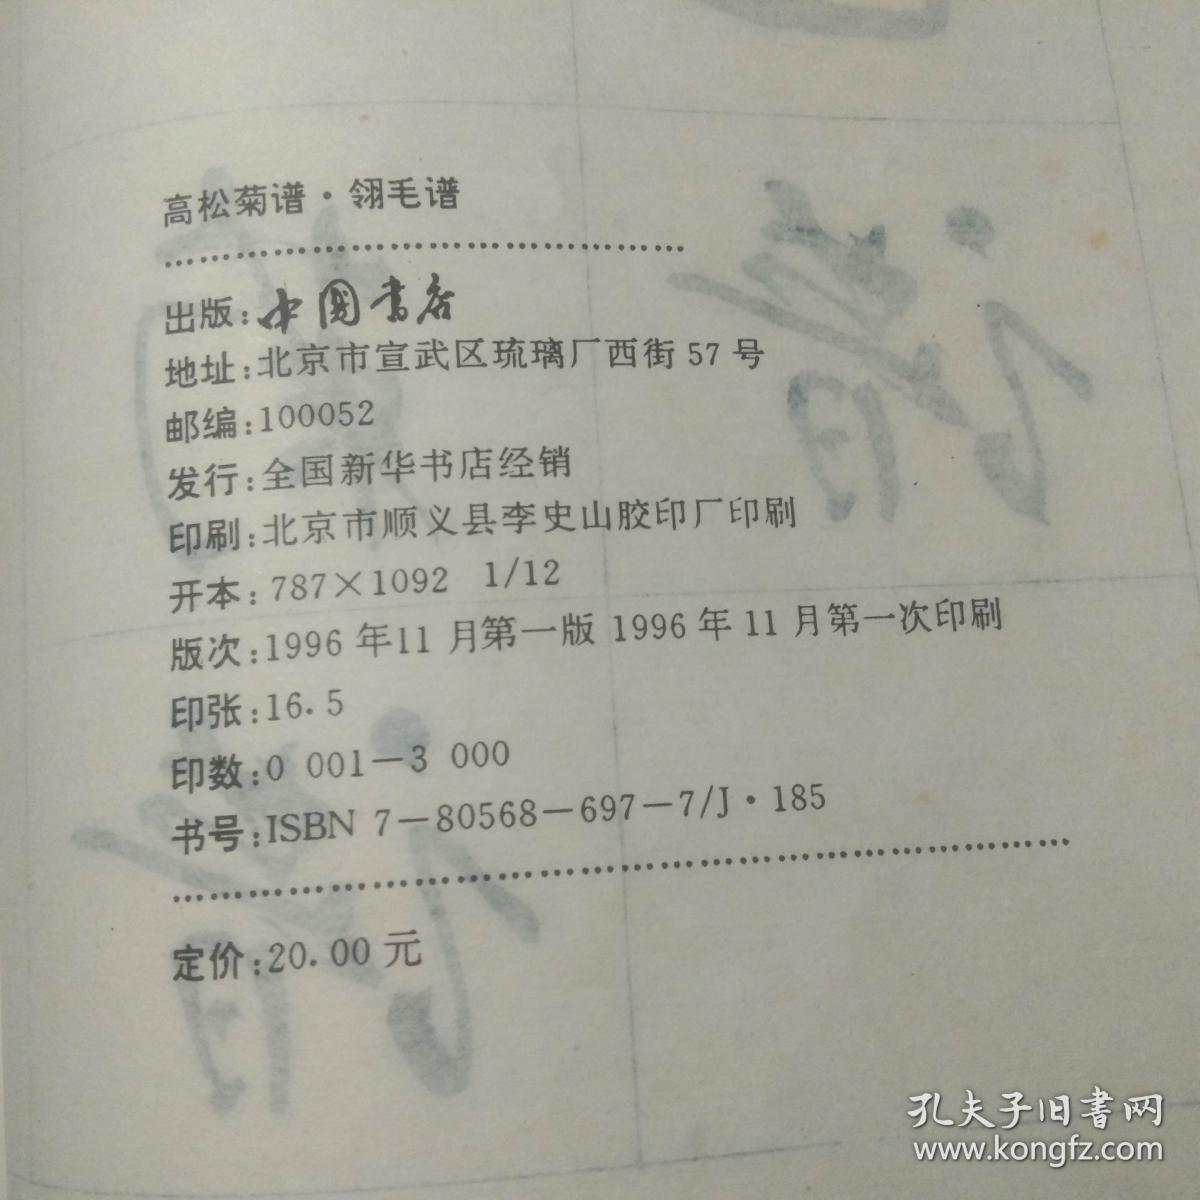 高松菊谱·翎毛谱
出版:中国书店
地址:北京市宣武区琉璃厂西街 57 号
邮编:100052
发行:全国新华书店经销
印刷:北京市顺义县李史山胶印厂印刷
开本:787×1092 1/12
版次:1996 年11 月第一版 1996 年 11 月第一次印刷
印张:16.5
印数:0 001—3 000
书号:ISBN 7—80568—697—7/J·185
定价:20.00 元
孔夫子旧书网
www.kongfz.com